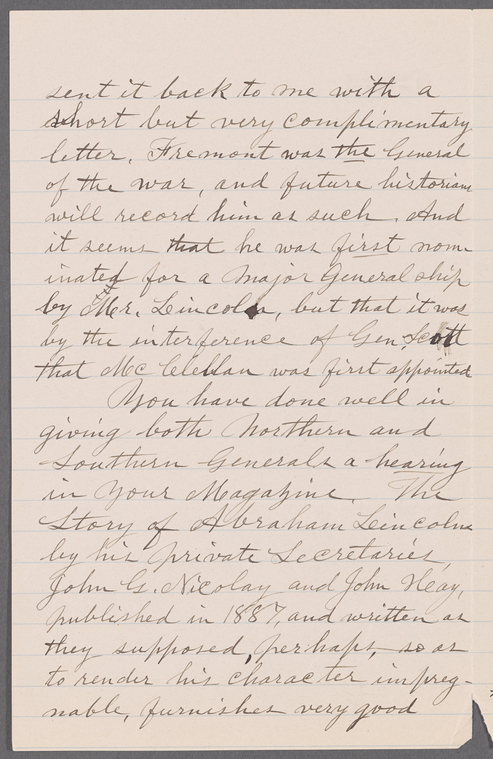 sent it back to me with a
short but very complimentary
letter. Fremont was the General
of the war, and future historians
will record him as such. And
it seems that he was first nom-
inated for a Major General ship
by Mr. Lincoln, but that it was
by the interference of Gen. Scott
that McClellan was first appointed
You have done well in
giving both Northern and
Southern Generals a hearing
in your Magazine. The
Story of Abraham Lincoln
by his private Secretaries,
John G. Nicolay and John Heay,
published in 1887, and written as
they supposed, perhaps, so as
to render his character impreg-
nable, furnishes very good